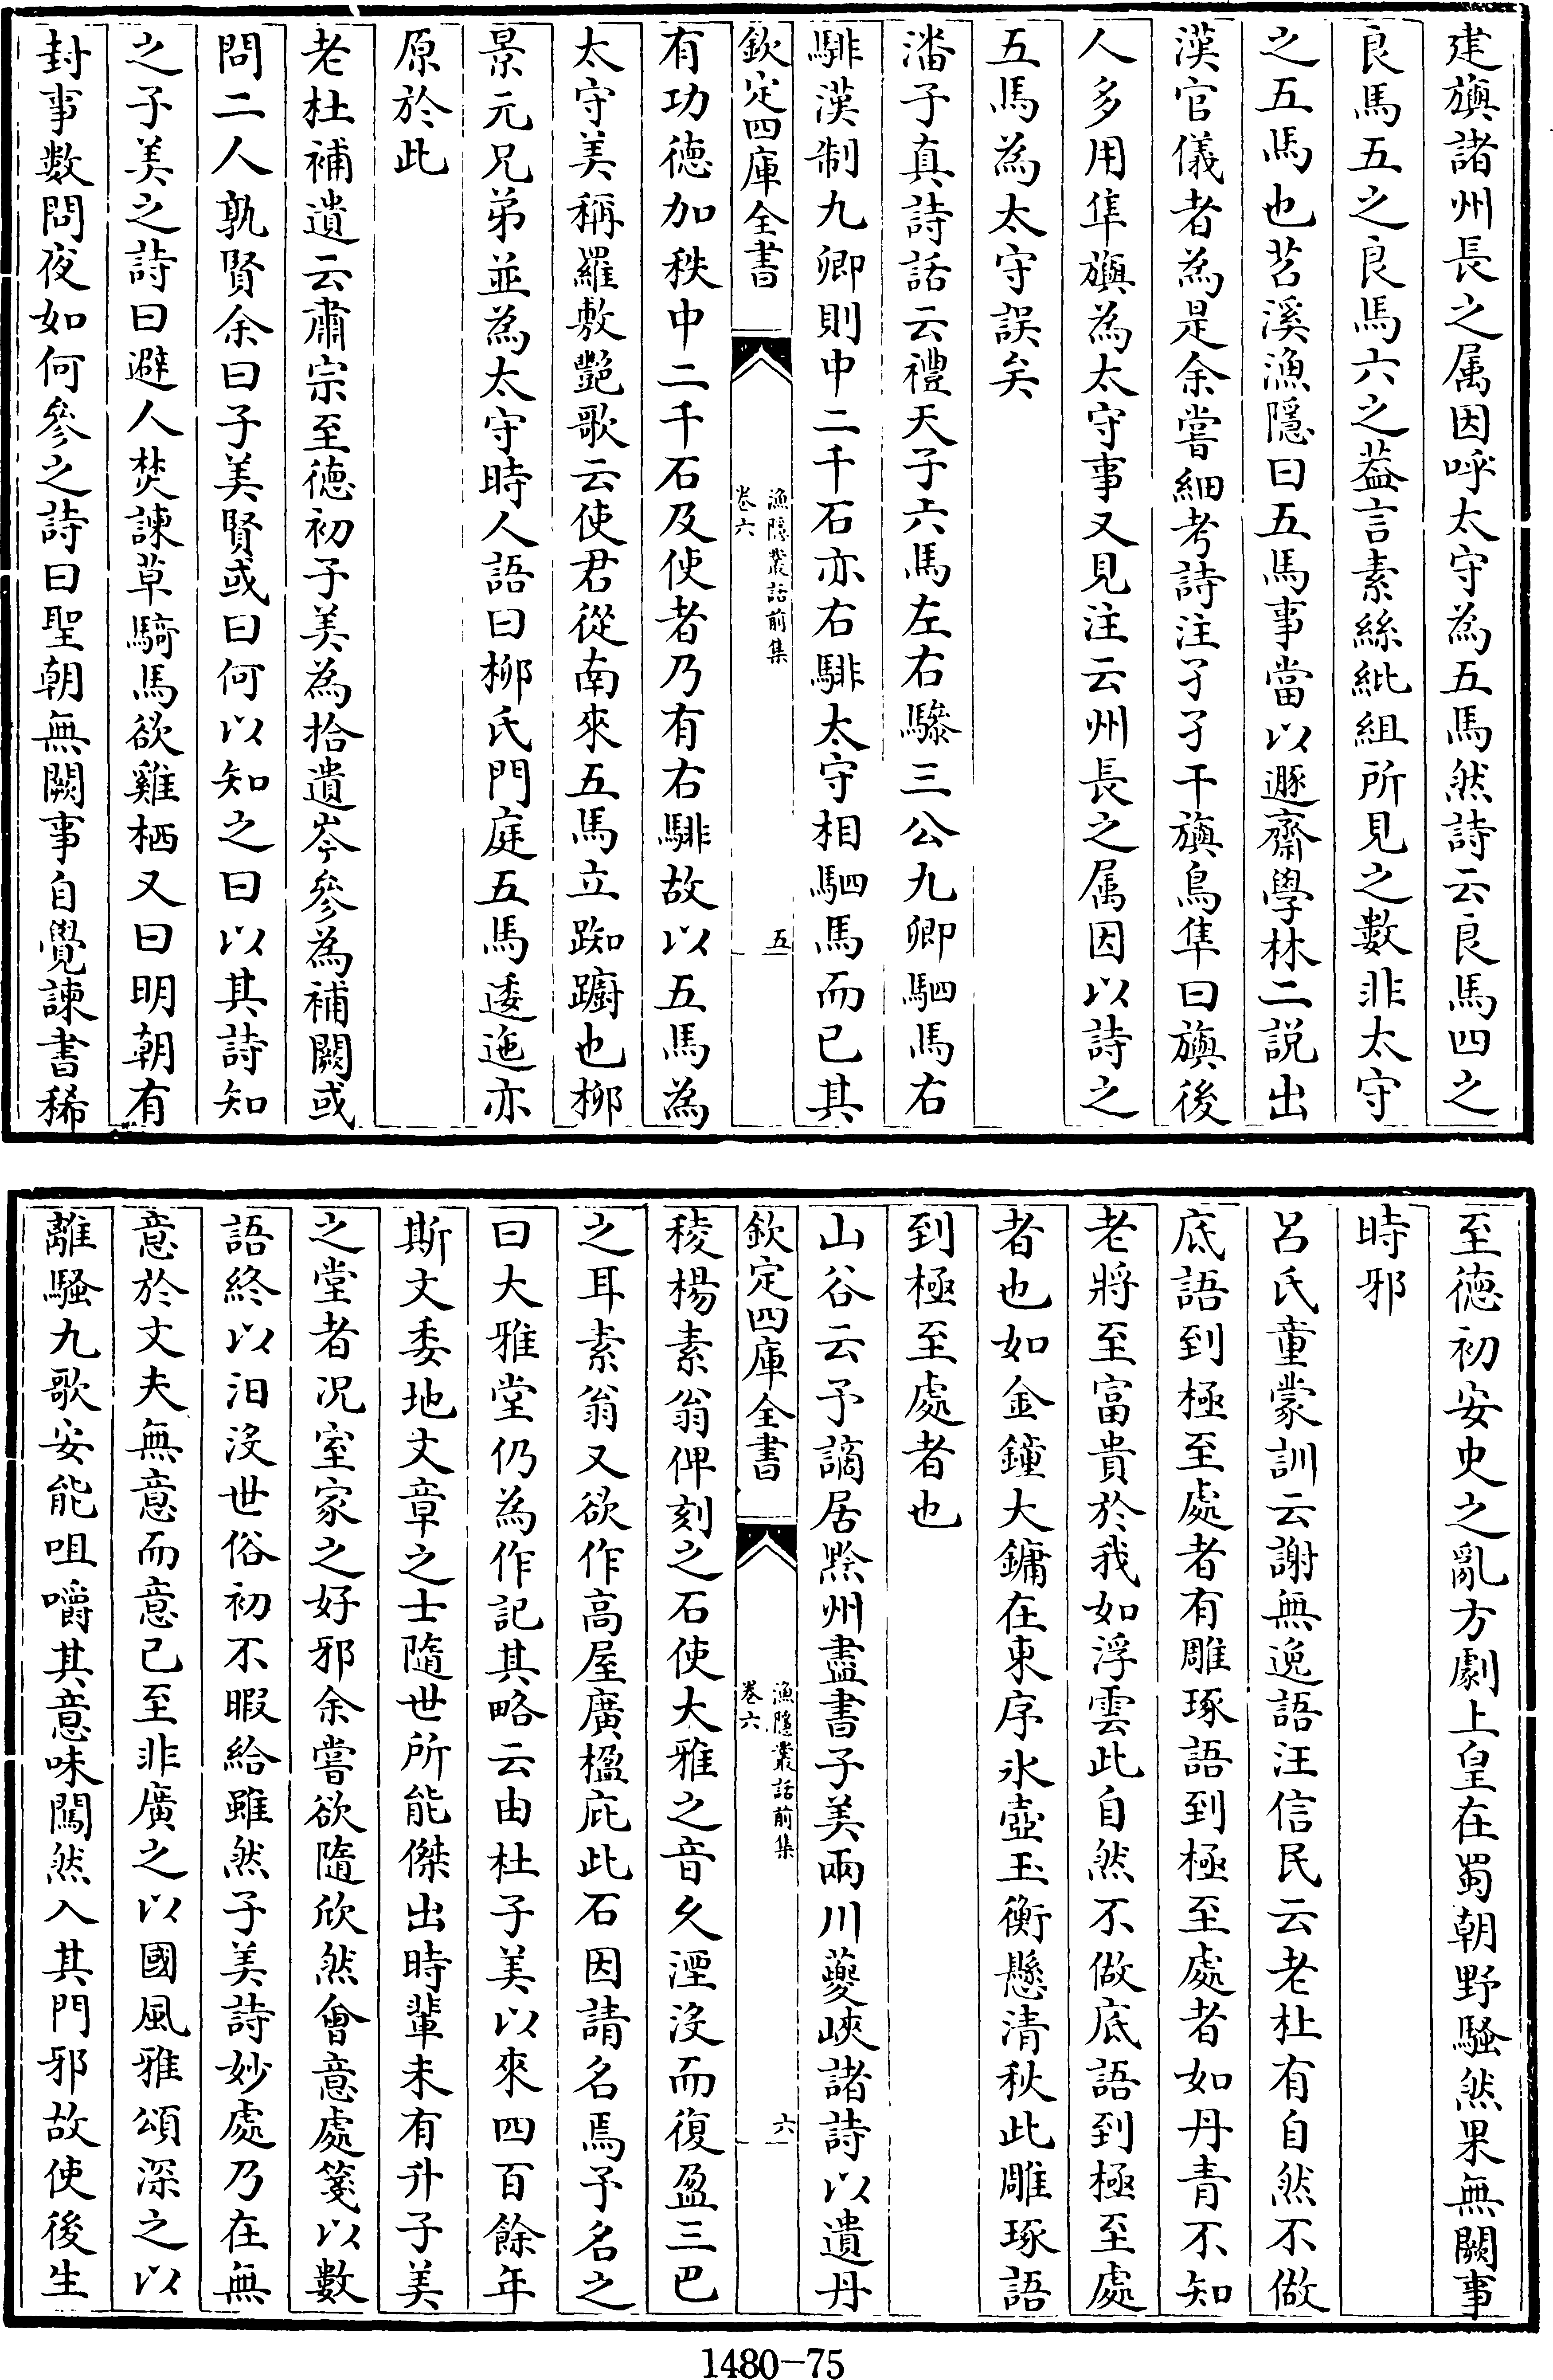 建旟諸州長之属因呼太守為五馬然詩云良馬四之
良馬五之良馬六之葢言素絲紕組所見之數非太守
之五馬也苕溪漁隱曰五馬事當以遯齋學林二説出
漢官儀者為是余嘗細考詩注孑孑干旟鳥隼曰旟後
人多用隼旟為太守事又見注云州長之属因以詩之
五馬為太守誤矣
潘子真詩話云禮天子六馬左右驂三公九卿駟馬右
騑漢制九卿則中二千石亦右騑太守相駟馬而已其
欽定四庫全書
漁隱叢話前集
卷六
五
有功徳加秩中二千石及使者乃有右騑故以五馬為
太守美稱羅敷艷歌云使君從南來五馬立踟躕也柳
景元兄弟並為太守時人語曰柳氏門庭五馬逶迤亦
原於此
老杜補遺云肅宗至徳初子美為拾遺岑參為補闕或
問二人孰賢余曰子美賢或曰何以知之曰以其詩知
之子美之詩曰避人焚諫草騎馬欲雞栖又曰明朝有
封事數問夜如何參之詩曰聖朝無闕事自覺諫書稀
至徳初安史之亂方劇上皇在蜀朝野騷然果無闕事
時邪
呂氏童蒙訓云謝無逸語汪信民云老杜有自然不做
底語到極至處者有雕琢語到極至處者如丹青不知
老將至富貴於我如浮雲此自然不做底語到極至處
者也如金鐘大鏞在東序氷壺玉衡懸清秋此雕琢語
到極至處者也
山谷云予謫居黔州盡書子美兩川夔峽諸詩以遺丹
欽定四庫全書
漁隱叢話前集
卷六
六
稜楊素翁俾刻之石使大雅之音久湮没而復盈三巴
之耳素翁又欲作高屋廣楹庇此石因請名焉予名之
曰大雅堂仍為作記其略云由杜子美以來四百餘年
斯文委地文章之士隨世所能傑出時輩未有升子美
之堂者况室家之好邪余嘗欲隨欣然會意處箋以數
語終以汩没世俗初不暇給雖然子美詩妙處乃在無
意於文夫無意而意已至非廣之以國風雅頌深之以
離騷九歌安能咀嚼其意味闖然入其門邪故使後生
1480-75